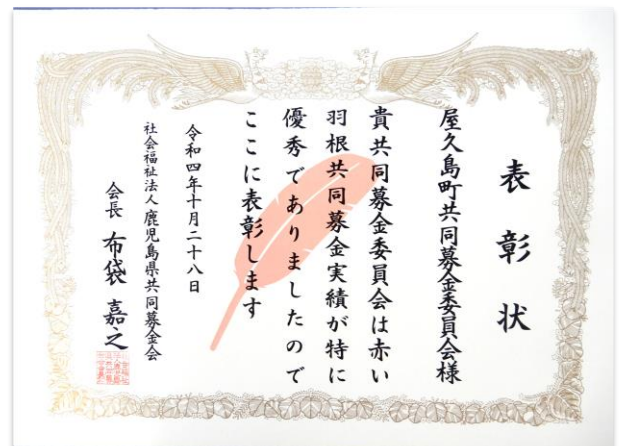 表彰状
屋久島町共同募金委員会様
貴共同募金委員会は赤い
羽根共同募金実績が特に
優秀でありましたので
ここに表彰します
令和四年十月二十八日
社会福祉法人鹿児島県共同募金会
会長 布袋 嘉之